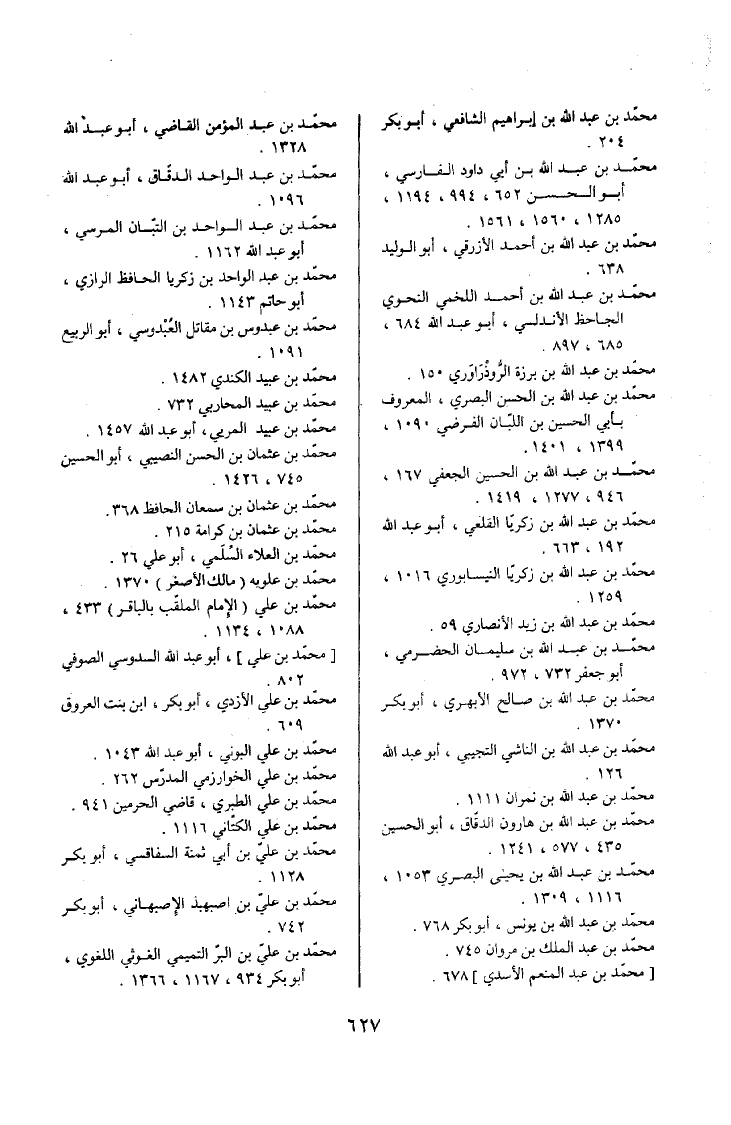 محمّد بن عبد الله بن إبراهيم الشافعي ، أبو بكر
٢٠٤ .
محمّد بن عبد الله بن أبي داود الفارسي ،
أبو الحسن ٦٥٢ ، ٩٩٤ ، ١١٩٤ ،
١٢٨٥ ، ١٥٦٠ ، ١٥٦١ .
محمّد بن عبد الله بن أحمد الأزرقي ، أبو الوليد
٦٣٨ .
محمّد بن عبد الله بن أحمد اللخمي النحوي
الجاحظ الأندلسي ، أبو عبد الله ٦٨٤ ،
٦٨٥ ، ٨٩٧ .
محمّد بن عبد الله بن برزة الرُّوذْرَاوَري ١٥٠ .
محمّد بن عبد الله بن الحسن البصري ، المعروف
بأبي الحسين بن اللبّان الفرضي ١٠٩٠ ،
١٣٩٩ ، ١٤٠١ .
محمّد بن عبد الله بن الحسين الجعفي ١٦٧ ،
٩٤٦ ، ١٢٧٧ ، ١٤١٩ .
محمّد بن عبد الله بن زكريّا القلعي ، أبو عبد الله
١٩٢ ، ٦٦٣ .
محمّد بن عبد الله بن زكريّا النيسابوري ١٠١٦ ،
١٢٥٩ .
محمّد بن عبد الله بن زيد الأنصاري ٥٩ .
محمّد بن عبد الله بن سليمان الحضرمي ،
أبو جعفر ٧٣٢ ، ٩٧٢ .
محمّد بن عبد الله بن صالح الأبهري ، أبو بكر
١٣٧٠ .
محمّد بن عبد الله بن الناشي التجيبي ، أبو عبد الله
١٢٦ .
محمّد بن عبد الله بن نمران ١١١١ .
محمّد بن عبد الله بن هارون الدقاق ، أبو الحسين
٤٣٥ ، ٥٧٧ ، ١٢٤١ .
محمّد بن عبد الله بن يحيى البصري ١٠٥٣ ،
١١١٦ ، ١٣٠٩ .
محمّد بن عبد الله بن يونس ، أبو بكر ٧٦٨ .
محمّد بن عبد الملك بن مروان ٧٤٥ .
[ محمّد بن عبد المنعم الأسدي ] ٦٧٨ .
محمّد بن عبد المؤمن القاضي ، أبو عبد الله
١٣٢٨ .
محمّد بن عبد الواحد الدقّاق ، أبو عبد الله
١٠٩٦ .
محمّد بن عبد الواحد بن التبّان المرسي ،
أبو عبد الله ١١٦٢ .
محمّد بن عبد الواحد بن زكريا الحافظ الرازي ،
أبو حاتم ١١٤٣ .
محمّد بن عبدوس بن مقاتل العُبْدوسي ، أبو الربيع
١٠٩١ .
محمّد بن عبيد الكندي ١٤٨٢ .
محمّد بن عبيد المحاربي ٧٣٢ .
محمّد بن عبيد المربي، أبو عبد الله ١٤٥٧ .
محمّد بن عثمان بن الحسن النصيبي ، أبو الحسين
٧٤٥ ، ١٤٢٦ .
محمّد بن عثمان بن سمعان الحافظ ٣٦٨ .
محمّد بن عثمان بن كرامة ٢١٥ .
محمّد بن العلاء السُلّمي ، أبو علي ٢٦ .
محمّد بن علويه ( مالك الأصغر ) ١٣٧٠ .
محمّد بن علي ( الإمام الملقّب بالباقر ) ٤٣٣ ،
١٠٨٨ ، ١١٣٤ .
[ محمّد بن علي ] ، أبو عبد الله السدوسي الصوفي
٨٠٢ .
محمّد بن علي الأزدي ، أبو بكر ، ابن بنت العروق
٦٠٩ .
محمّد بن علي البوني ، أبو عبد الله ١٠٤٣ .
محمّد بن علي الخوارزمي المدرّس ٢٦٢ .
محمّد بن علي الطبري ، قاضي الحرمين ٩٤١ .
محمّد بن علي الكتّاني ١١١٦ .
محمّد بن عليّ بن أبي ثمنة السفاقسي ، أبو بكر
١١٢٨ .
محمّد بن عليّ بن اصبهبذ الإصبهاني ، أبو بكر
٧٤٢ .
محمّد بن عليّ بن البرّ التميمي الغوثي اللغوي ،
أبو بكر ٩٣٤ ، ١١٦٧ ، ١٣٦٦ .
٦٢٧